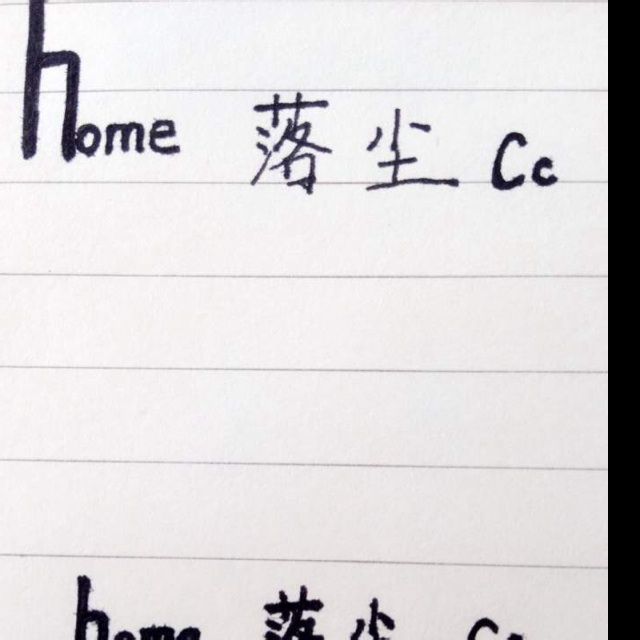 home 落尘 Cc
home 落尘 Cc